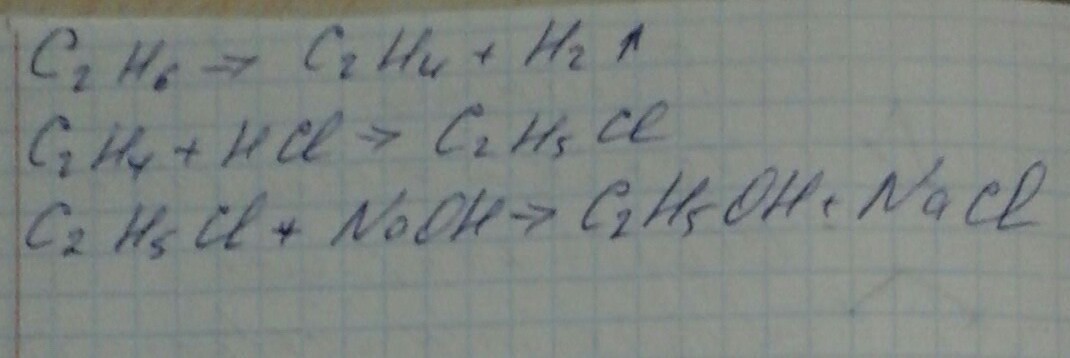 C₂H₆ → C₂H₄ + H₂↑
C₂H₄ + HCl → C₂H₅Cl
C₂H₅Cl + NaOH → C₂H₅OH + NaCl